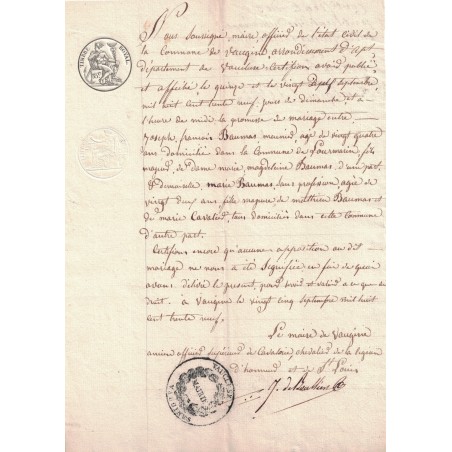 TIMBRE ROYAL
Nous soussigné, maire officier de l'état civil de
la Commune de Vaugine, arrondissement d'Apt
département de Vaucluse Certifions avoir publié
et affiché le quinze et le vingt Septembre
mil huit cent trente neuf, jours de dimanche, et à
l'heure de midi la promesse de mariage entre
Joseph, françois Baumas, age de vingt quatre
ans domicilié dans la Commune de Lourmarin fils
majeur, de Dame marie, magdeleine Baumas, d'une part,
& demoiselle marie Baumas, sans profession, agée de
vingt deux ans, fille majeure de mathieu Baumas et
de marie Cavalier, tous domiciliés dans cette Commune
d'autre part.
Certifions encore qu'aucune opposition au dit
mariage ne nous a été Signifiée en foi de quoi
avons délivré le présent, pour servir et valoir à ce que de
droit. à Vaugine le vingt cinq Septembre mil huit
cent trente neuf.
Le maire de Vaugine
ancien officier supérieur de Cavalerie, chevalier de la légion
d'honneur et de St Louis
MAIRIE
VAUCLUSE